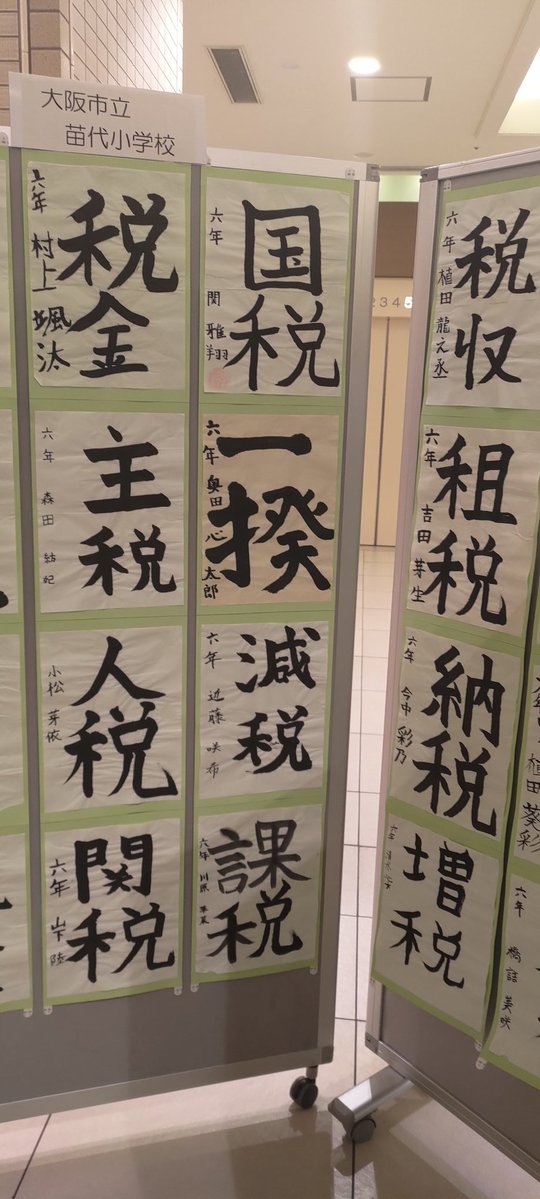 大阪市立
苗代小学校
国税
六年 関 雅翔
税金
六年 村上 颯汰
一揆
六年 奥田 心太郎
主税
六年 森田 結妃
減税
六年 近藤 咲希
人税
小松 芽依
課税
六年 川原
関税
六年 山下 陸
税収
六年 植田 龍之丞
租税
六年 吉田 芽生
納税
六年 今中 彩乃
増税
六年
植田 葵彩
六年 橋詰 美咲
2345